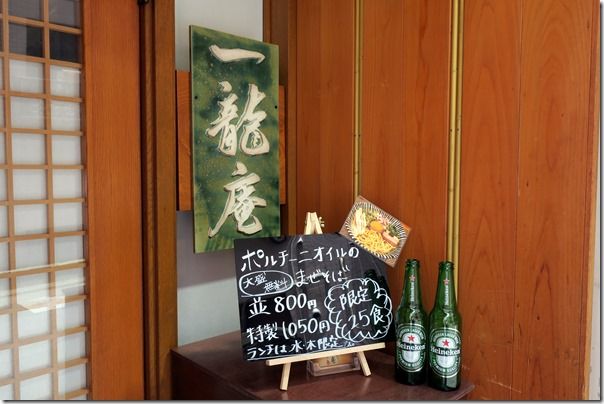 一龍庵
ポルチーニオイルの
大盛無料 まぜそば
並 800円
特製 1050円
限定
25食
ランチは 水・木限定
Heineken
Heineken